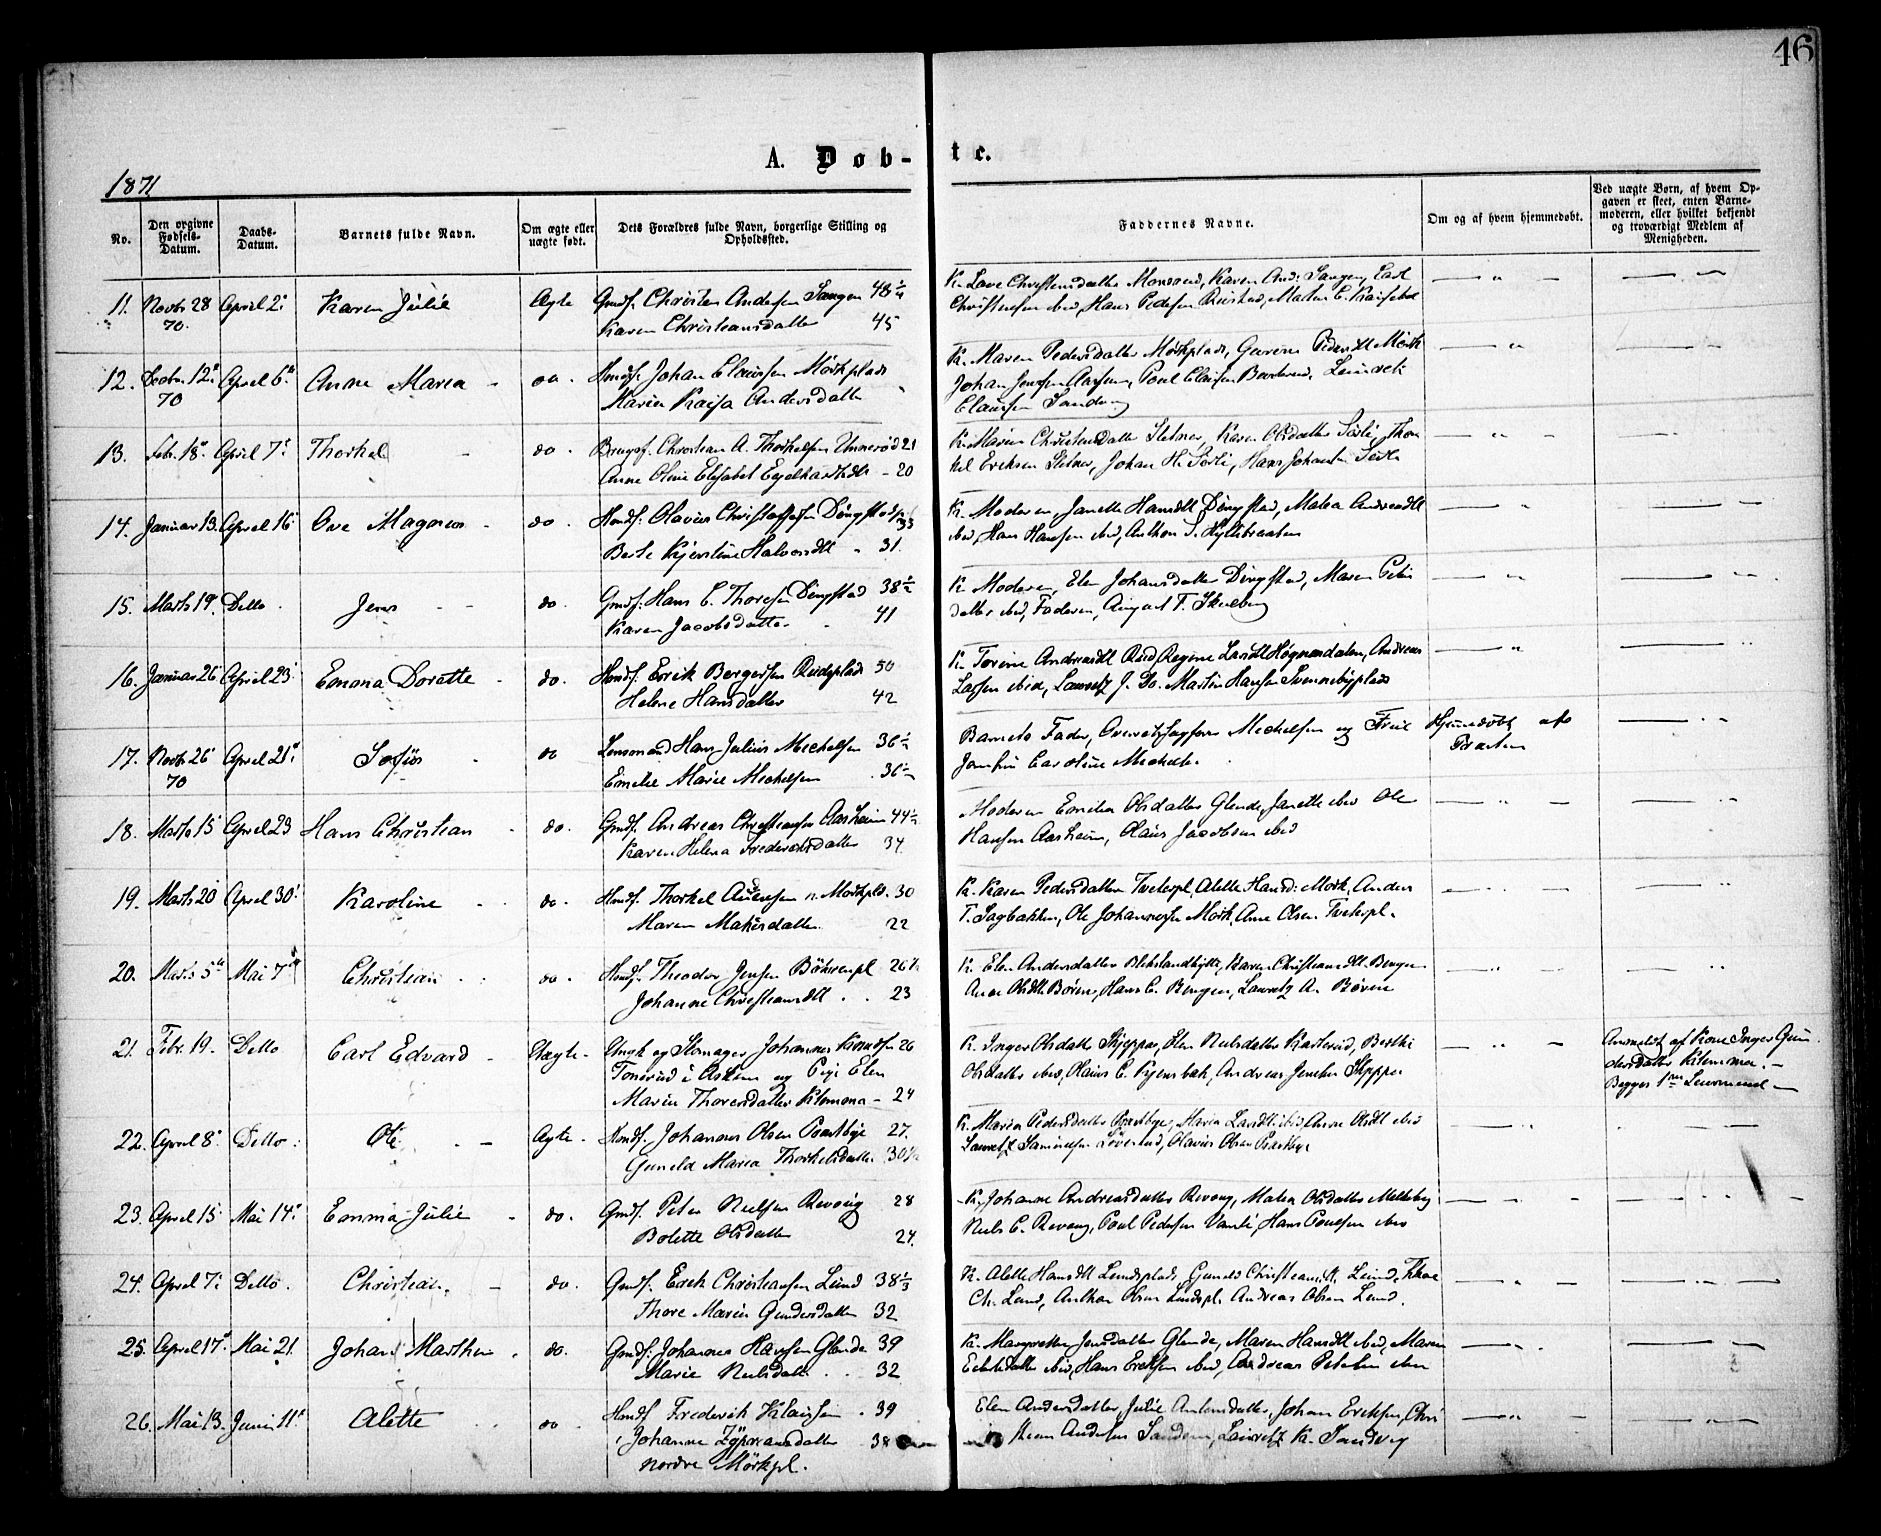 46
A. Døb-te.
1871
No.
Den opgivne Fødsels-Datum.
Daabs-Datum.
Barnets fulde Navn.
Om ægte eller uægte født.
Dets Forældres fulde Navn, borgerlige Stilling og Opholdssted.
Faddernes Navne.
Om og af hvem hjemmedøbt.
Ved uægte Børn, af hvem Opgaven er skeet, enten Barnemoderen, eller hvilket bekjendt og troværdigt Medlem af Menigheden.
11. Novbr 28 70. April 2. Karen Julie Ægte Gmdf. Christen Andersen Sangen 48½
Karen Christiansdatter 45
Christensen ibid, Hans Pedersen
12. Decbr. 12. 70 April 6. Anne Maria - do. Hmdf. Johan Clausen Mörkplads
Maria Kaisa Andersdatter
K. Maren Pedersdatter Mörkplads,
Johan Jensen Aassen, Poul Clausen
Clausen Sandvig
13. Febr. 18. April 7. Thorkel - do. Brugsf. Christian A. Thorkelsen Unnerød 21
Anne Oline Elisabet Engelhardtsdtr - 20
K. Maren Christensdatter Sletner, Karen Olsdatter Sørli, Thor
kel Eriksen Sletner, Johan H. Sørli, Hans Johansen Sørli
14. Januar 13. April 16 Ove Magnus - do. Hmdf. Olavus Christophersen Dingstadpl. 33
Berte Kjerstine Halvorsdtt - 31.
K. Moderen, Janette Hansdtt Dingstad, Matea Andreasdtt
ibid, Hans Hansen ibid, Anthon S. Hyttebraaten
15. Marts 19. Ditto. Jens - do. Gmdf. Hans C. Thoresen Dingstad 38½
Karen Jacobsdatter - 41
K. Moderen, Elen Johansdatter Dingstad, Maren Peders
datter ibid, Faderen, August T. Skulberg
16. Januar 26 April 23 Emma Dorette - do. Hmdf. Erik Bergersen Rudsplads 50
Helene Hansdatter 42
K. Torine Andreasdtt Rud, Regine Larsdtt Høgnesdalen, Andreas
Larsen ibid, Lauretz J. Do. Martin Hansen Svennebyplads
17. Novbr 26 70 April 21. Sofus - do Lensmand Hans Julius Mechelsen 36½
Emelie Marie Mechelsen 36½
Barnets Fader, Overretssagfører Mechelsen og Frue
Jomfru Caroline
Hjemmedøbt af
Præsten
18. Marts 15 April 23 Hans Christian - do. Gmdf. Andreas Christiansen Aasheim 44½
Karen Helena Frederiksdatter 34
Moderen Emilia Olsdatter Glende, Janette ibid Ole
Hansen Aasheim, Olaus Jacobsen ibid
19. Marts 20 April 30. Karoline - do. Hmdf. Thorkel Andersen n. Mörkpld. 30
Maren Matisdatter 22
K. Karen Pedersdatter Tveterpl, Alette Hansd: Mörk, Anders
T. Sagbakken, Ole Johannesen Mörk, Arne Olsen Tveterpl.
20. Marts 5 Mai 7 Christian do. Hmdf. Theodor Jensen Böhrenpl 26½
Johanne Christiansdtt . . 23
K. Elen Andersdatter Blekslandhytte, Karen Christiansdtt Bengen
Anne Olsdtt Bören, Hans C. Bengen, Lauretz A. Bören
21. Febr. 19. Ditto Carl Edvard - Uægte - Ungk og Skomager Johannes Knudsen 26
Tonerud i Askim og Pige Elen
Maria Thoresdatter Klemma - 24
K. Inger Olsdatter Skjeppes, Elen Nielsdatter Karterud, Berthe
Olsdatter ibid, Olaus C. Kjensbak, Andreas Jensen
Anmeldt af Kone Inger Gun
dersdatter Klemma. -
Begges 1ste Leiermaal -
22. April 8. Ditto. Ole - Ægte - Hmdf. Johannes Olsen Prastbye 27.
Gunild Maria Thorkelsdatter 30½
K. Maria Pedersdatter Prastbye, Maria Larsdtt ibid, Anne Olsdtt ibid
Lauretz Löverud, Olavus Olsen Prastbye
23. April 15 Mai 14. Emma Julie - do. Gmdf. Peter Nielsen Revoug 28
Bolette Olsdatter 24.
K. Johanne Andreasdatter Revoug, Matea Olsdatter Melleby
Niels C. Revoug, Poul Pedersen Vamli, Hans Poulsen ibid
24. April 7. Ditto. Christian. - do. Gmdf. Erik Christiansen Lund 38⅓
Thore Maria Gundersdatter 32
K. Alette Hansdtt Lundsplads, Gunild Christiansdtt. Lund, Thore
Ch. Lund, Anthon Olsen Lundspl. Andreas Olsen Lund.
25. April 17. Mai 21. Johan Marthin . do. Gmdf. Johannes Hansen Glende 39
Marie Nielsdatt. . . 32
K. Margrethe Jensdatter Glende, Maren Hansdtt ibid, Maren
Eriksdatter ibid, Hans Eriksen ibid, Andreas Petersen ibid
26. Mai 13. Juni 11. Alette do Hmdf. Frederik Klausen . 39
Johanne Zypriansdatter 38
Nordre Mörkpl.
Elen Andersdatter, Julie Antonsdatter, Johan Eriksen, Chri
stian Andersen Sanden, Lauretz Kr. Sandvig